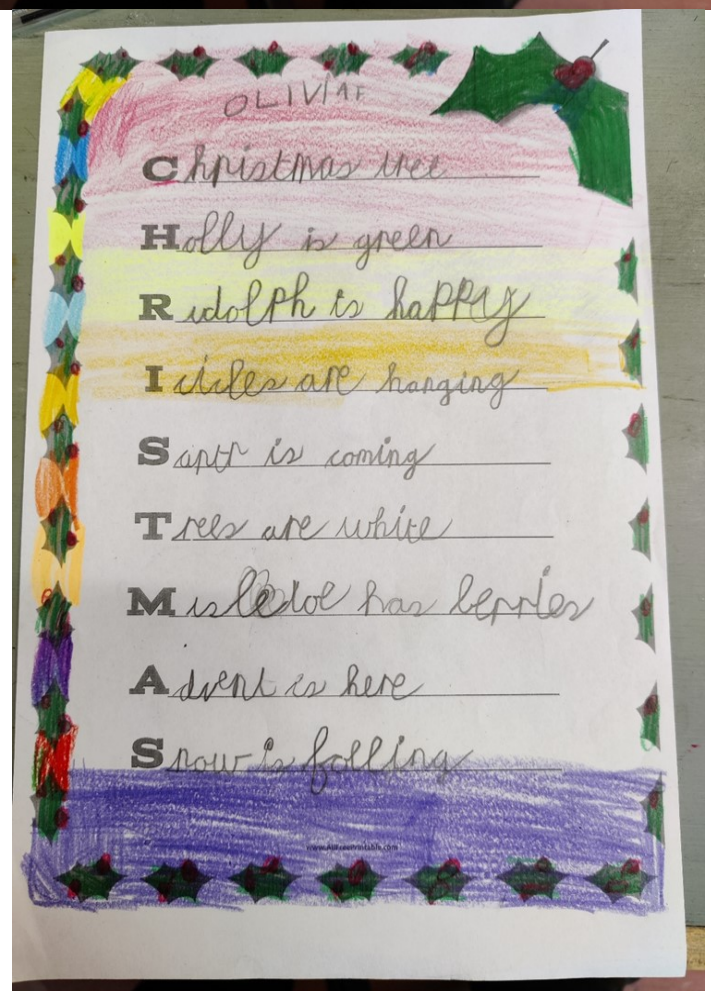 OLIVIAE
Christmas tree
Holly is green
Rudolph is happy
Icicles are hanging
Santa is coming
Trees are white
Misledoe has berries
Advent is here
Snow is falling
www.AllFreePrintable.com